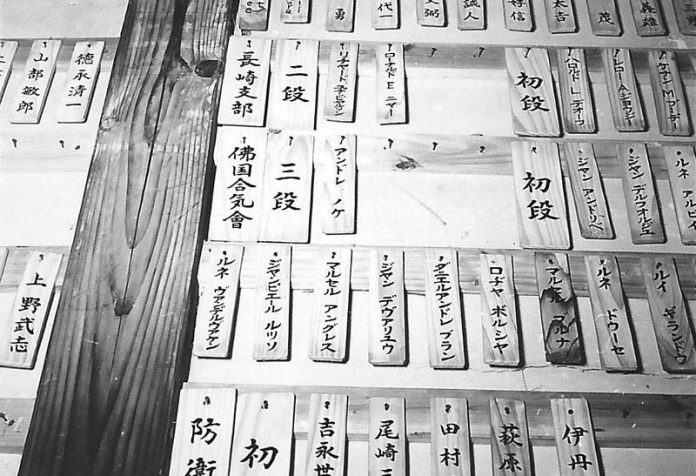 勇
代一
誠人
好信
太吉
茂
義雄
山部敏郎
徳永清一
長崎支部
二段
リチャード
ローナルド E ニマー
初段
ハロルド L
佛国合気會
三段
アンドレ ノケ
初段
ジャン アンドリベ
ジャン デルフォルジュ
ルネ
上野武志
ルネ ヴァンデルヴァケン
ジャンピエール ルツソ
マルセル アングレス
ジャン デヴァリュウ
ダニエルアンドレ ブラン
ロヂャ ボルシャ
ブルナ
ルネ ドウーセ
ルイ ギランドウ
防衛
初
吉永世
尾崎三
田村
萩原
伊丹